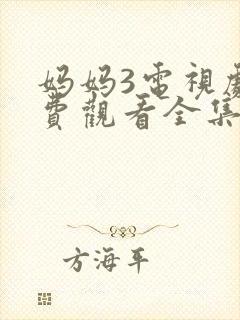 妈妈3電視處
費觀看全集
方海平